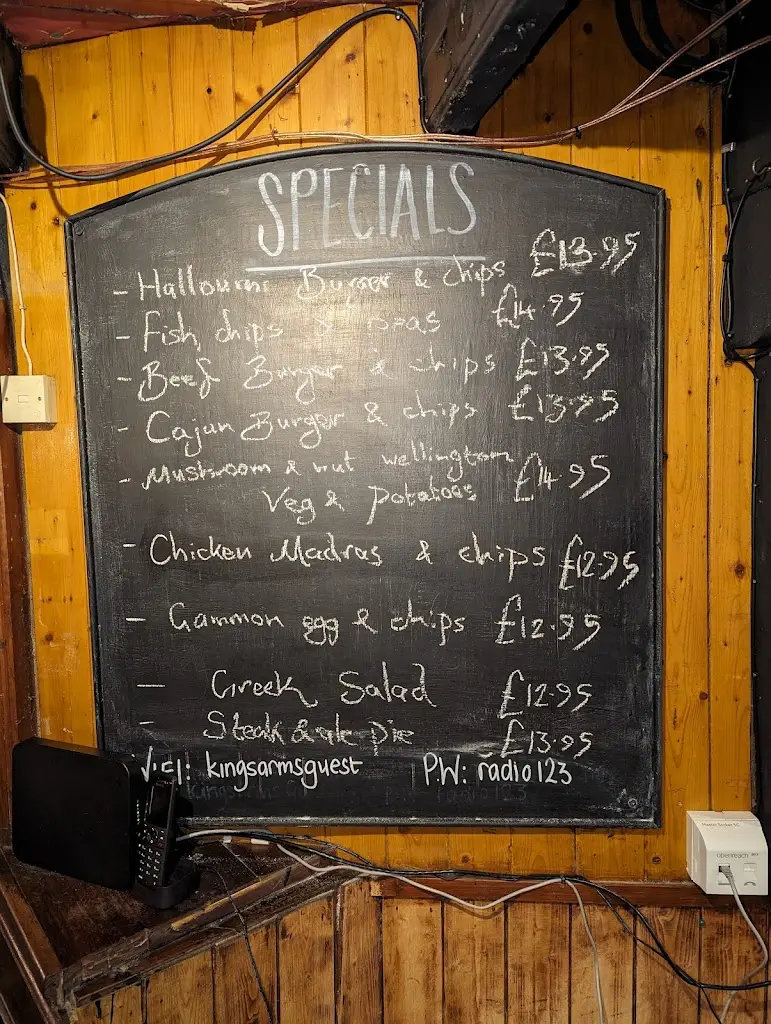 SPECIALS
- Halloumi Burger & chips £13.95
- Fish, chips & peas £14.95
- Beef Burger & chips £13.95
- Cajun Burger & chips £13.95
- Mushroom & nut wellington £14.95
Veg & potatoes
- Chicken Madras & chips £12.95
- Gammon egg & chips £12.95
- Greek Salad £12.95
- Steak & ale pie £13.95
kingsarmsguest P.W: radio123
openreach